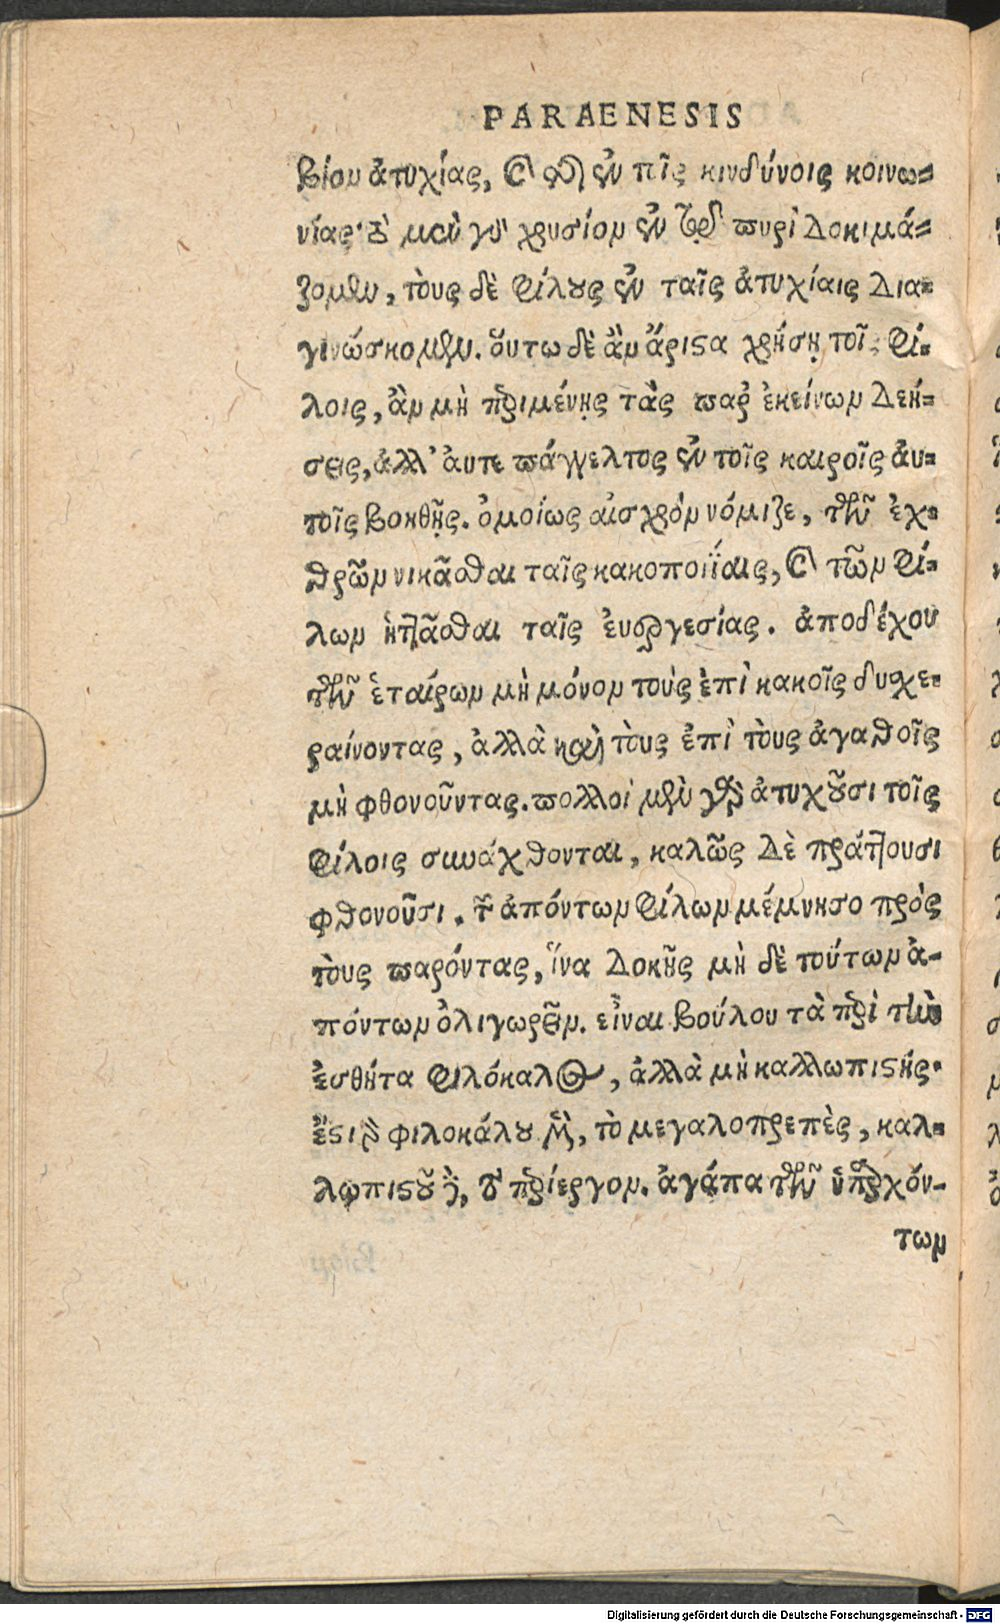 PARAENESIS
βίου ἀτυχίας, καὶ τῆς ἐν τοῖς κινδύνοις κοινω-
νίας· τὸ μὲν γὰρ χρυσίον ἐν τῷ πυρὶ δοκιμά-
ζομεν, τοὺς δὲ φίλους ἐν ταῖς ἀτυχίαις δια-
γινώσκομεν. οὕτω δὲ ἂν ἄριστα χρήσῃ τοῖς φί-
λοις, ἂν μὴ περιμένῃς τὰς παρ' ἐκείνων δεή-
σεις, ἀλλ' ἀυτεπάγγελτος ἐν τοῖς καιροῖς ἀυ-
τοῖς βοηθῇς. ὁμοίως αἰσχρὸν νόμιζε, τῶν ἐχ-
θρῶν νικᾶσθαι ταῖς κακοποιΐαις, καὶ τῶν φί-
λων ἡττᾶσθαι ταῖς ἐυεργεσίας. ἀποδέχου
τῶν ἑταίρων μὴ μόνον τοὺς ἐπὶ κακοῖς δυσχε-
ραίνοντας, ἀλλὰ καὶ τοὺς ἐπὶ τοὺς ἀγαθοῖς
μὴ φθονοῦντας. πολλοὶ μὲν γὰρ ἀτυχοῦσι τοῖς
φίλοις συνάχθονται, καλῶς δὲ πράττουσι
φθονοῦσι. τῶν ἀπόντων φίλων μέμνησο πρὸς
τοὺς παρόντας, ἵνα δοκῇς μὴ δὲ τούτων ἀ-
πόντων ὀλιγωρεῖν. εἶναι βούλου τὰ περὶ τὴν
ἐσθήτα φιλόκαλος, ἀλλὰ μὴ καλλωπιστής·
ἔστι γὰρ φιλοκάλου μὲν, τὸ μεγαλοπρεπὲς, καλ-
λωπιστοῦ δὲ, τὸ περίεργον. ἀγάπα τῶν ὑπαρχόν-
των
Digitalisierung gefördert durch die Deutsche Forschungsgemeinschaft - DFG